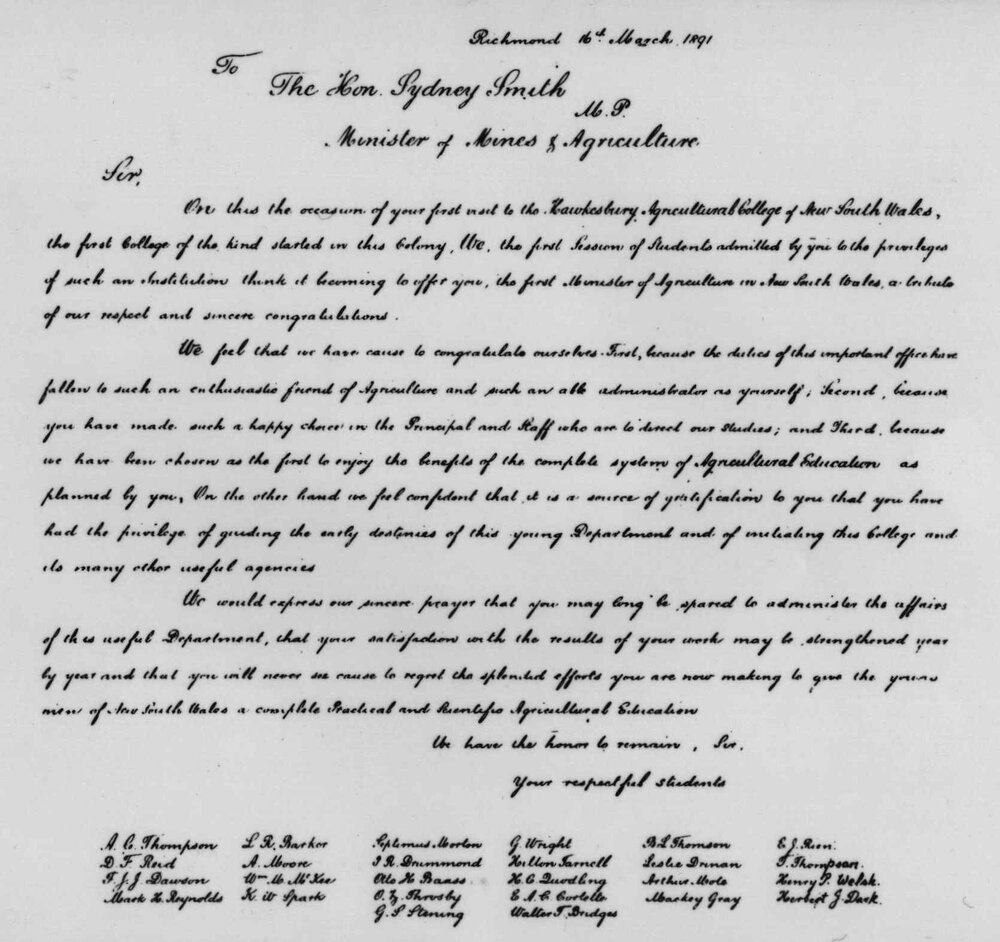 Richmond 16th March 1891
To
The Hon. Sydney Smith
M.P.
Minister of Mines & Agriculture.
Sir,
On this the occasion of your first visit to the Hawkesbury Agricultural College of New South Wales,
the first College of the kind started in this Colony, We, the first Session of Students admitted by you to the privileges
of such an Institution think it becoming to offer you, the first Minister of Agriculture in New South Wales, a tribute
of our respect and sincere congratulations.
We feel that we have cause to congratulate ourselves. First, because the duties of this important office have
fallen to such an enthusiastic friend of Agriculture and such an able administrator as yourself; Second, because
you have made such a happy choice in the Principal and Staff who are to direct our studies; and Third, because
we have been chosen as the first to enjoy the benefits of the complete system of Agricultural Education as
planned by you, On the other hand we feel confident that it is a source of gratification to you that you have
had the privilege of guiding the early destinies of this young Department and of initiating this College and
its many other useful agencies
We would express our sincere prayer that you may long be spared to administer the affairs
of this useful Department, that your satisfaction with the results of your work may be strengthened year
by year and that you will never see cause to regret the splendid efforts you are now making to give the young
men of New South Wales a complete Practical and Scientific Agricultural Education
We have the honor to remain, Sir,
Your respectful students
A. C. Thompson L. R. Barker Septimus Morton G. Wright B L Thomson E. J. Rien
D. F. Reid A. Moore J R. Drummond Hilton Farnell Leslie Drinan F. Thompson.
F. J. J. Dawson Wm M. McKee Otto H Baass H. C. Quodling Arthur Mote Henry P. Welsh.
Mark H. Reynolds K. W Spark O. Z. Throsby E A. C. Costello Mackey Gray Herbert J. Dark.
G. S Stening Walter T. Bridges